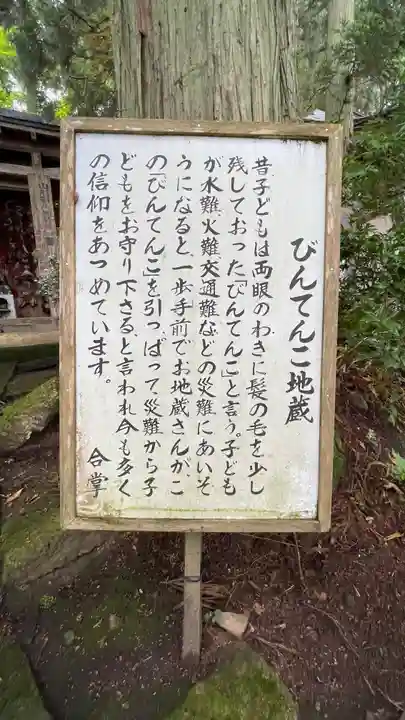 びんてんこ地蔵
昔子どもは両眼のわきに髪の毛を少し
残しておった「びんてんこ」と言う。子ども
が水難、火難、交通難などの災難にあいそ
うになると、一歩手前でお地蔵さんが、こ
の「びんてんこ」を引っぱって、災難から子
どもをお守り下さると言われ今も多く
の信仰をあつめています。
合掌